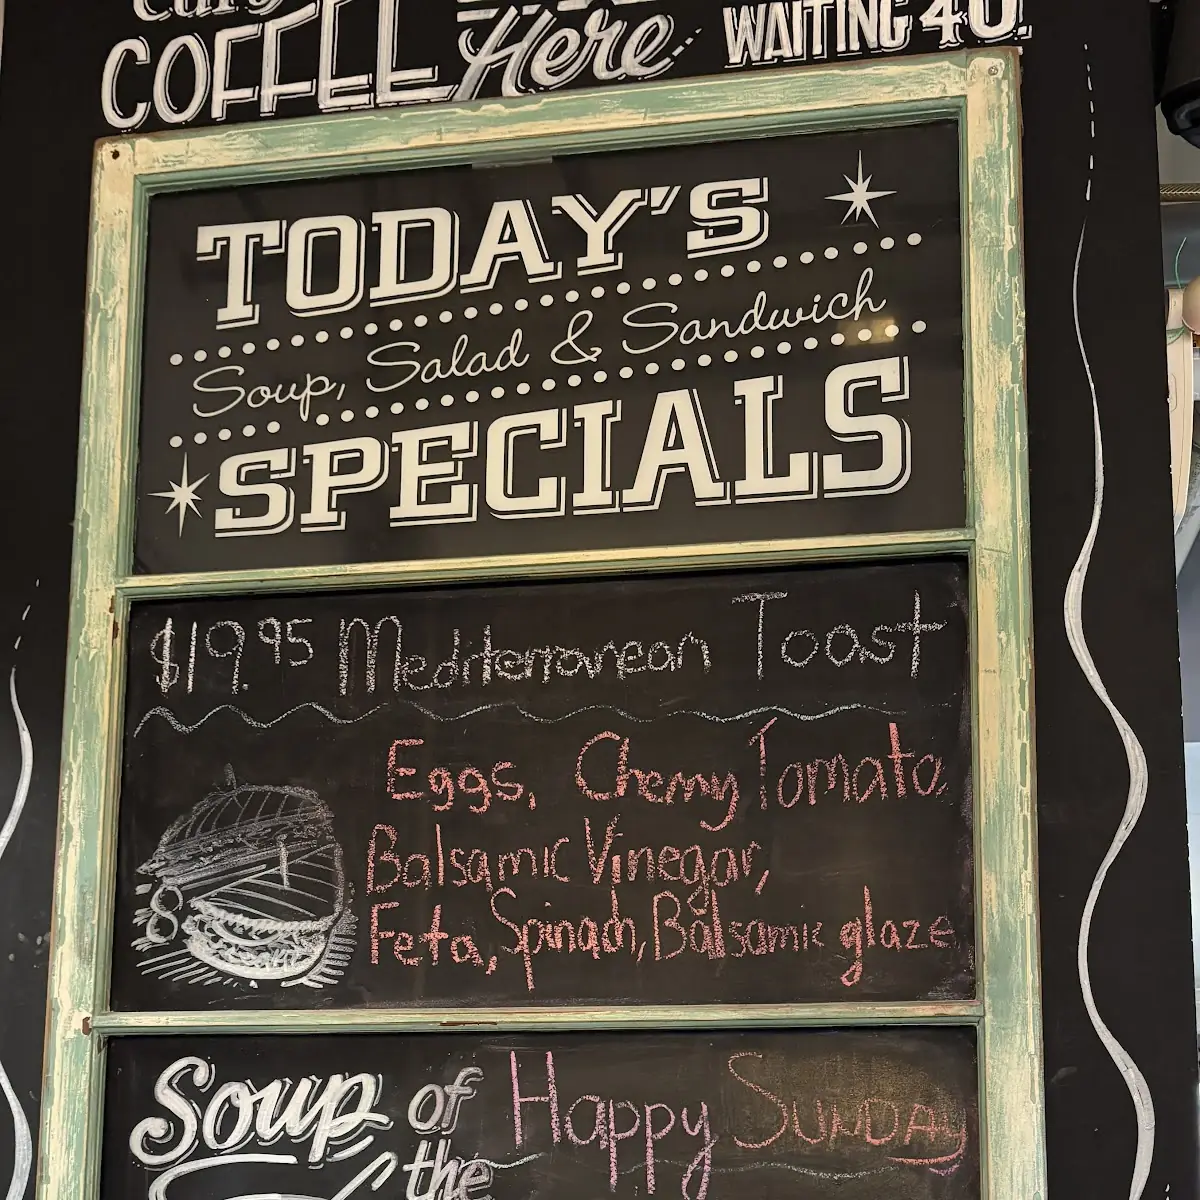 COFFEE Here WAITING 40!
TODAY'S
Soup, Salad & Sandwich
SPECIALS
$19.95 Mediterranean Toast
Eggs, Cherry Tomato,
Balsamic Vinegar,
Feta, Spinach, Balsamic glaze
Soup of Happy SUNDAY
the